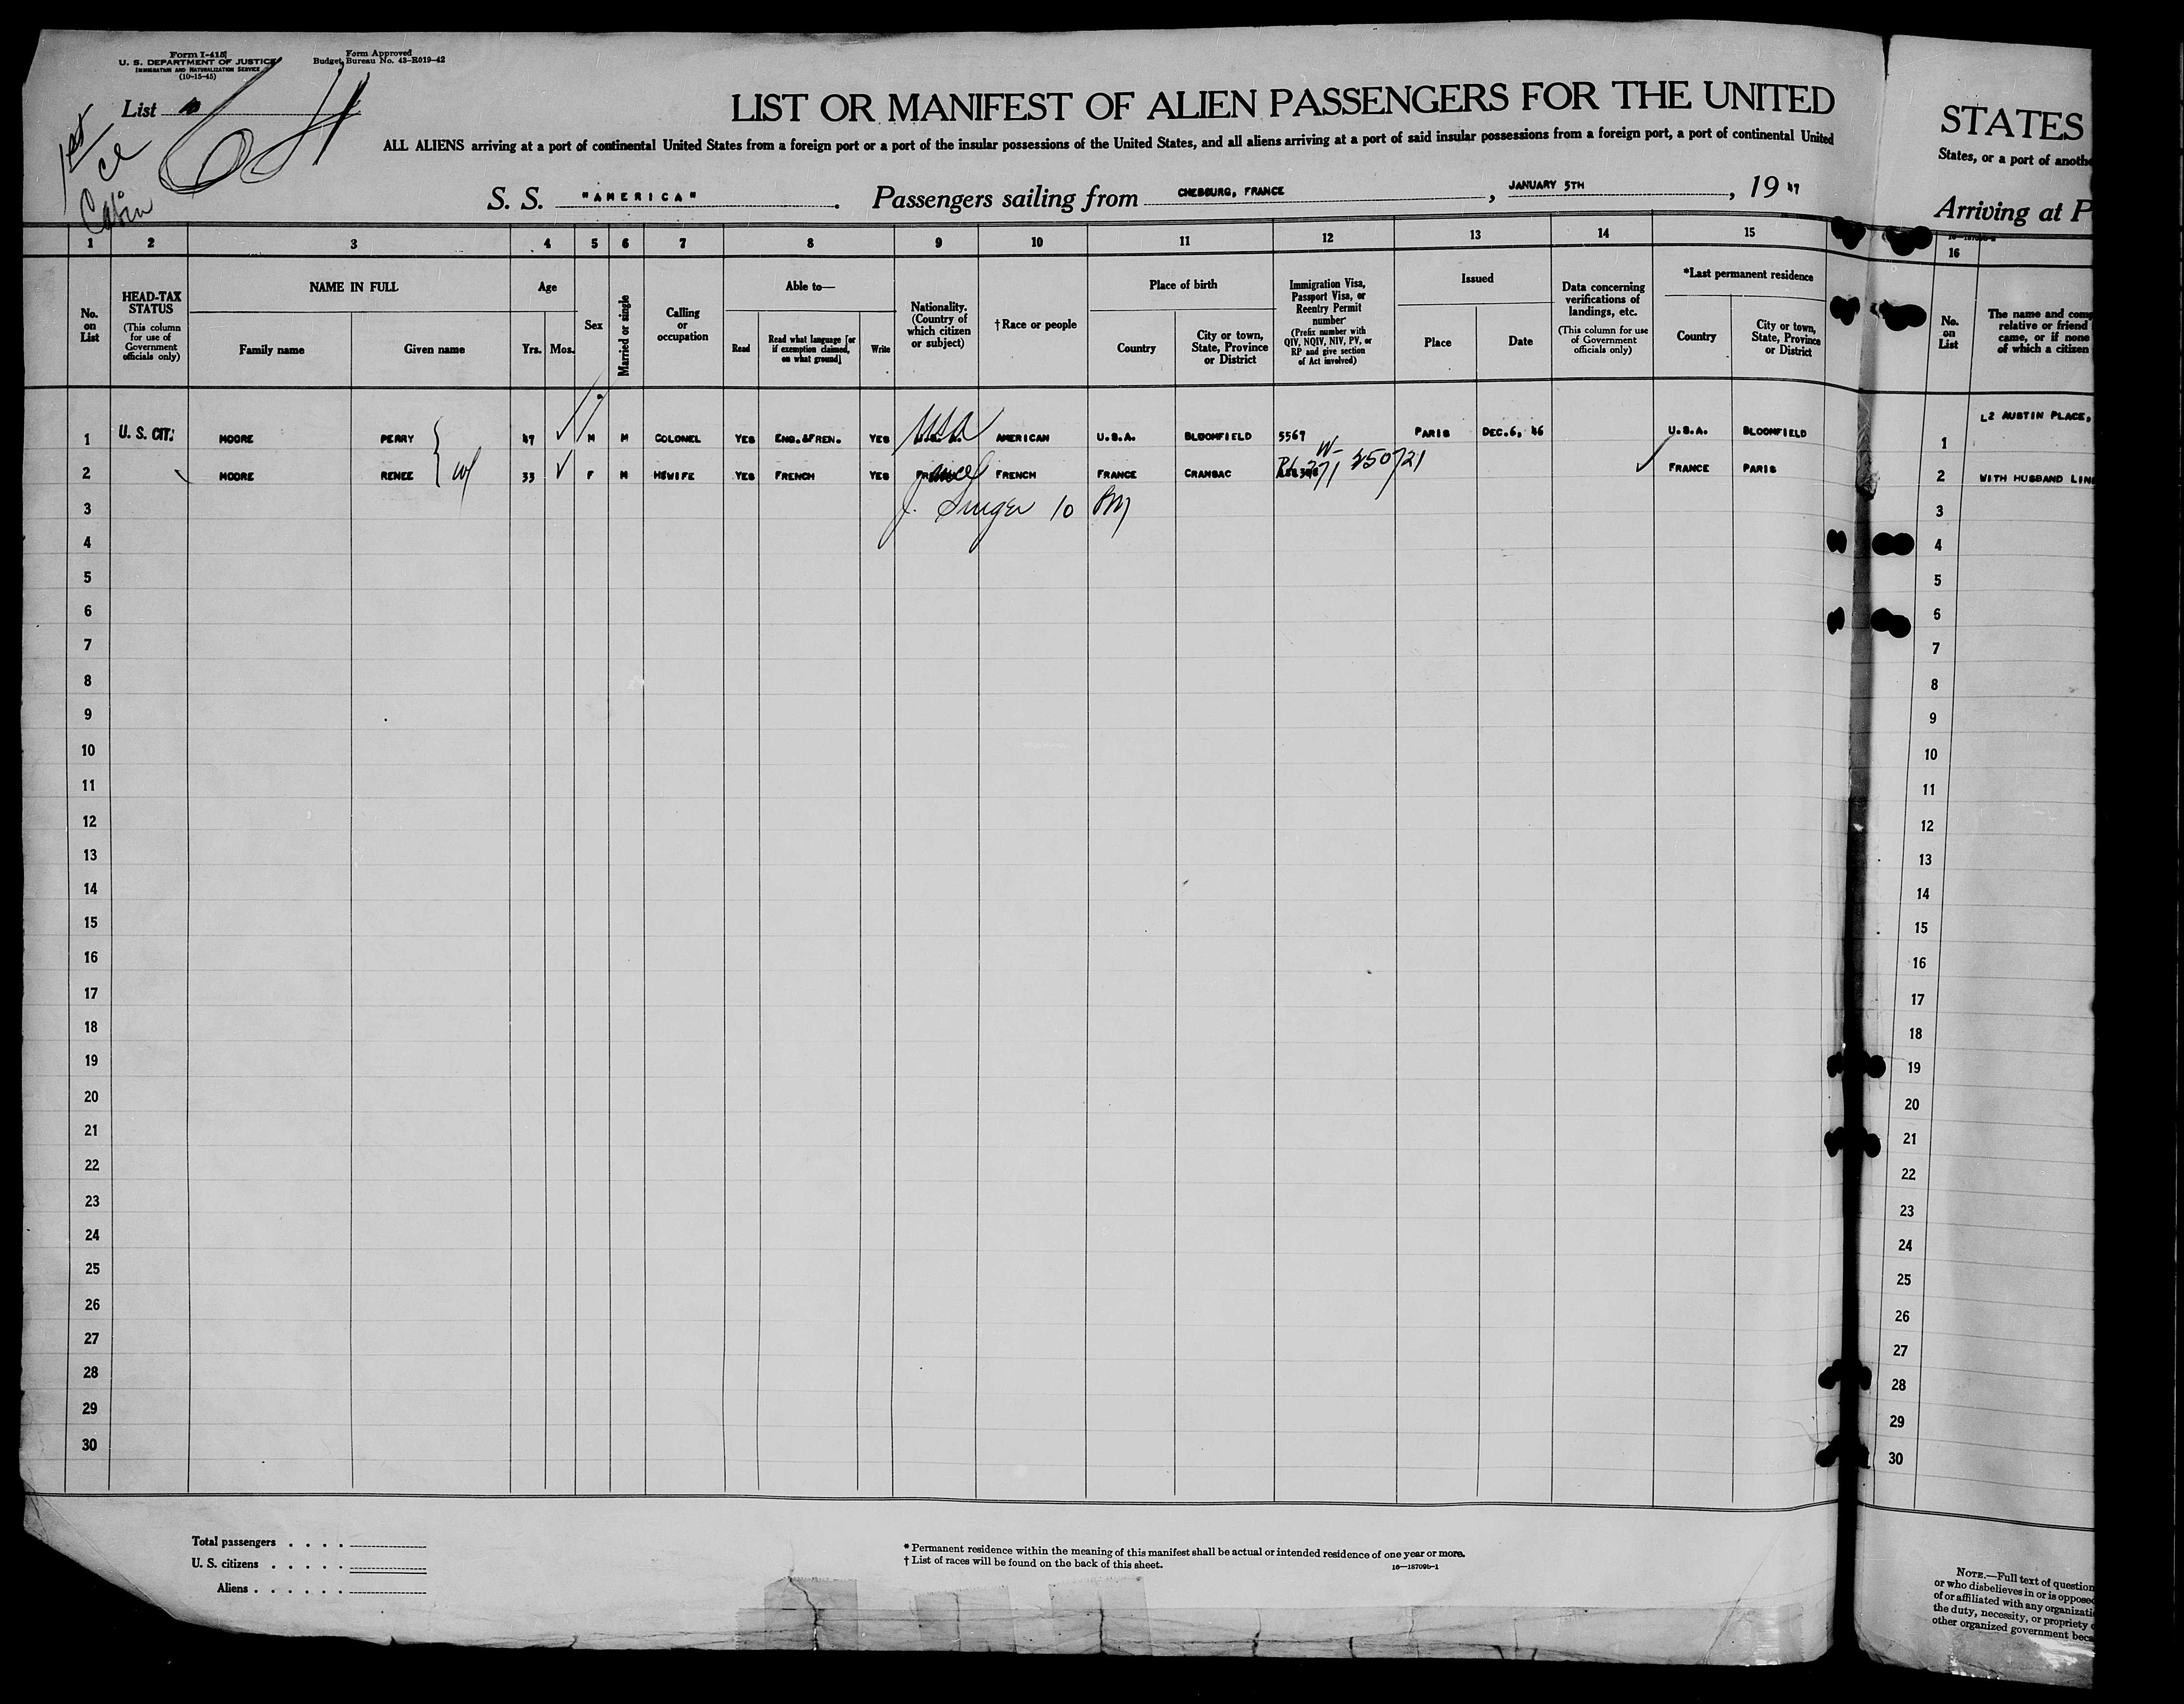 Form I-415
U. S. DEPARTMENT OF JUSTICE
IMMIGRATION AND NATURALIZATION SERVICE
(10-15-45)
Form Approved
Budget Bureau No. 43-R019-42
List
1st
cl
Cabin
LIST OR MANIFEST OF ALIEN PASSENGERS FOR THE UNITED
ALL ALIENS arriving at a port of continental United States from a foreign port or a port of the insular possessions of the United States, and all aliens arriving at a port of said insular possessions from a foreign port, a port of continental United
S. S. "AMERICA". Passengers sailing from CHEBOURG, FRANCE, JANUARY 5TH, 19 47
1 2 3 4 5 6 7 8 9 10 11 12 13 14 15
No. on List
HEAD-TAX STATUS
(This column for use of Government officials only)
NAME IN FULL
Family name
Given name
Age
Yrs.
Mos.
Sex
Married or single
Calling or occupation
Able to—
Read
Read what language [or if exemption claimed, on what ground]
Write
Nationality. (Country of which citizen or subject)
†Race or people
Place of birth
Country
City or town, State, Province or District
Immigration Visa, Passport Visa, or Reentry Permit number
(Prefix number with QIV, NQIV, NIV, PV, or RP and give section of Act involved)
Issued
Place
Date
Data concerning verifications of landings, etc.
(This column for use of Government officials only)
*Last permanent residence
Country
City or town, State, Province or District
1 U. S. CIT. MOORE PERRY 47 M M COLONEL YES ENG.&FREN. YES USA AMERICAN U.S.A. BLOOMFIELD 5567 PARIS DEC.6, 46 U.S.A. BLOOMFIELD
2 MOORE RENEE W/ 33 F M HSWIFE YES FRENCH YES FRENCH FRANCE CRANSAC FRANCE PARIS
3
4
5
6
7
8
9
10
11
12
13
14
15
16
17
18
19
20
21
22
23
24
25
26
27
28
29
30
Total passengers . . . .
U. S. citizens . . . . .
Aliens . . . . . .
* Permanent residence within the meaning of this manifest shall be actual or intended residence of one year or more.
† List of races will be found on the back of this sheet.
16—18709b-1
STATES
States, or a port of anoth
Arriving at P
16
No. on List
The name and com
relative or friend
came, or if none
of which a citizen
L2 AUSTIN PLACE,
1
2 WITH HUSBAND LIN
3
4
5
6
7
8
9
10
11
12
13
14
15
16
17
18
19
20
21
22
23
24
25
26
27
28
29
30
NOTE.—Full text of question
or who disbelieves in or is oppose
of or affiliated with any organizati
the duty, necessity, or propriety
other organized government beca